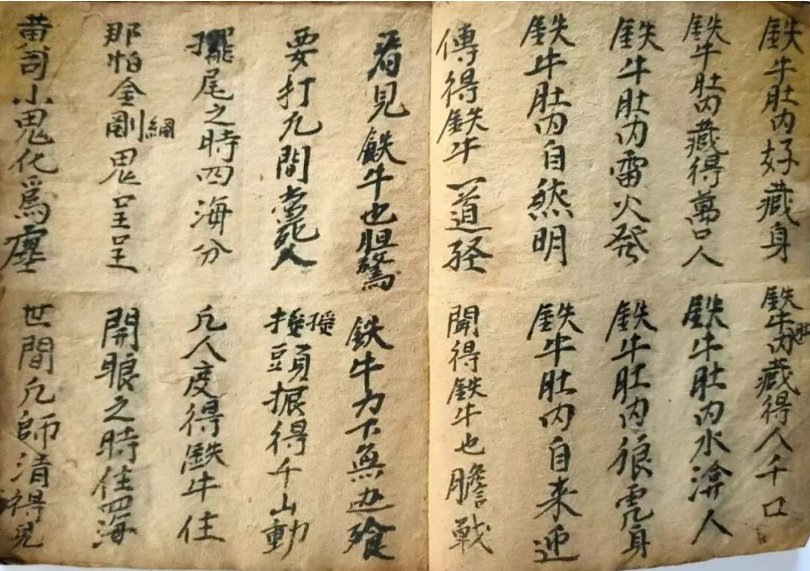 鉄牛肚内好藏身 鉄牛肚内藏得人千口
鉄牛肚内藏得萬口人 鉄牛肚内水渰人
鉄牛肚内雷火發 鉄牛肚内狼虎身
鉄牛肚内自然明 鉄牛肚内自来迎
傳得鉄牛一道経 聞得鉄牛也膽戦
看見鉄牛也胆驚 鉄牛力下無
要打凢間 人 揺頭振得千山動
擺尾之時四海分 凢人度得鉄牛住
那怕金剛網鬼呈呈 開眼之時住四海
黄司小鬼化為塵 世間凢師清得見